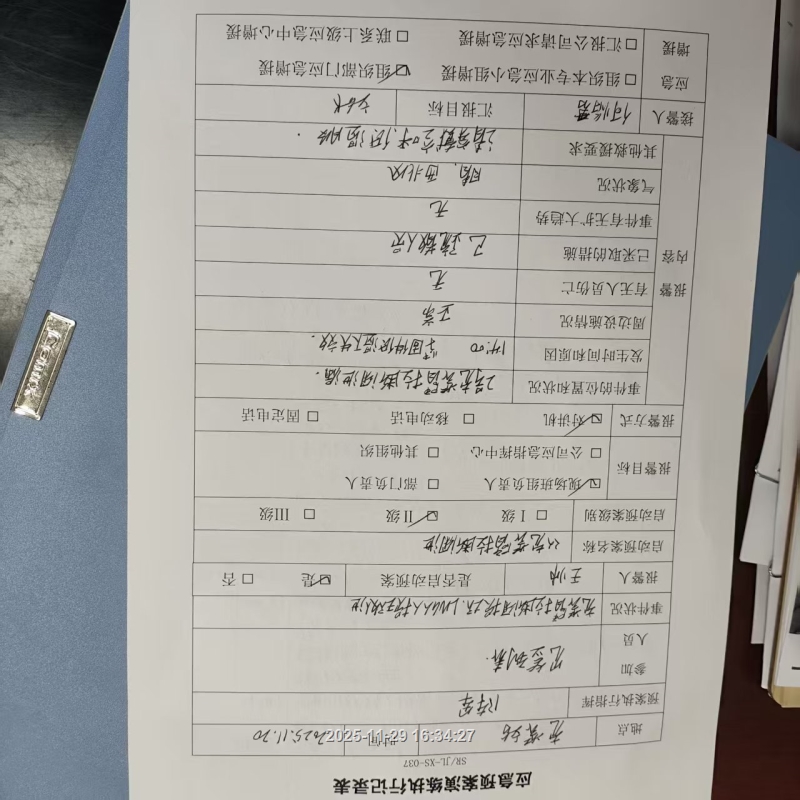 应急预案演练执行记录表
SR/JL-XS-037
地点 充装站 时间 2025.11.20
预案执行指挥
参加人员 见签到表
事件状况
报警人 王帅 是否启动预案 ☑是 □否
启动预案名称 充装臂拉断阀泄
启动预案级别 □Ⅰ级 ☑Ⅱ级 □Ⅲ级
报警目标 ☑现场班组负责人 □部门负责人
□公司应急指挥中心 □其他组织
报警方式 ☑对讲机 □移动电话 □固定电话
报警内容
事件的位置和状况 2号充装臂拉断阀泄漏.
发生时间和原因 14:00 紧固件低温下失效.
周边设施情况 正常
有无人员伤亡 无
已采取的措施 已疏散人员
事件有无扩大趋势 无
气象状况 晴.西北风
其他救援要求
接警人 汇报目标
应急增援 □组织本专业应急小组增援 ☑组织部门应急增援
□汇报公司请求应急增援 □联系上级应急中心增援
2025-11-29 16:34:27